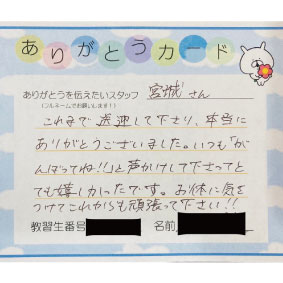 ありがとうカード
ありがとうを伝えたいスタッフ 宮城 さん
(フルネームでお願いします!)
これまで送迎して下さり、本当に
ありがとうございました。いつも「が
んばってね!!」と声かけして下さってと
ても嬉しかったです。お体に気を
つけてこれからも頑張って下さい!!
教習生番号 名前